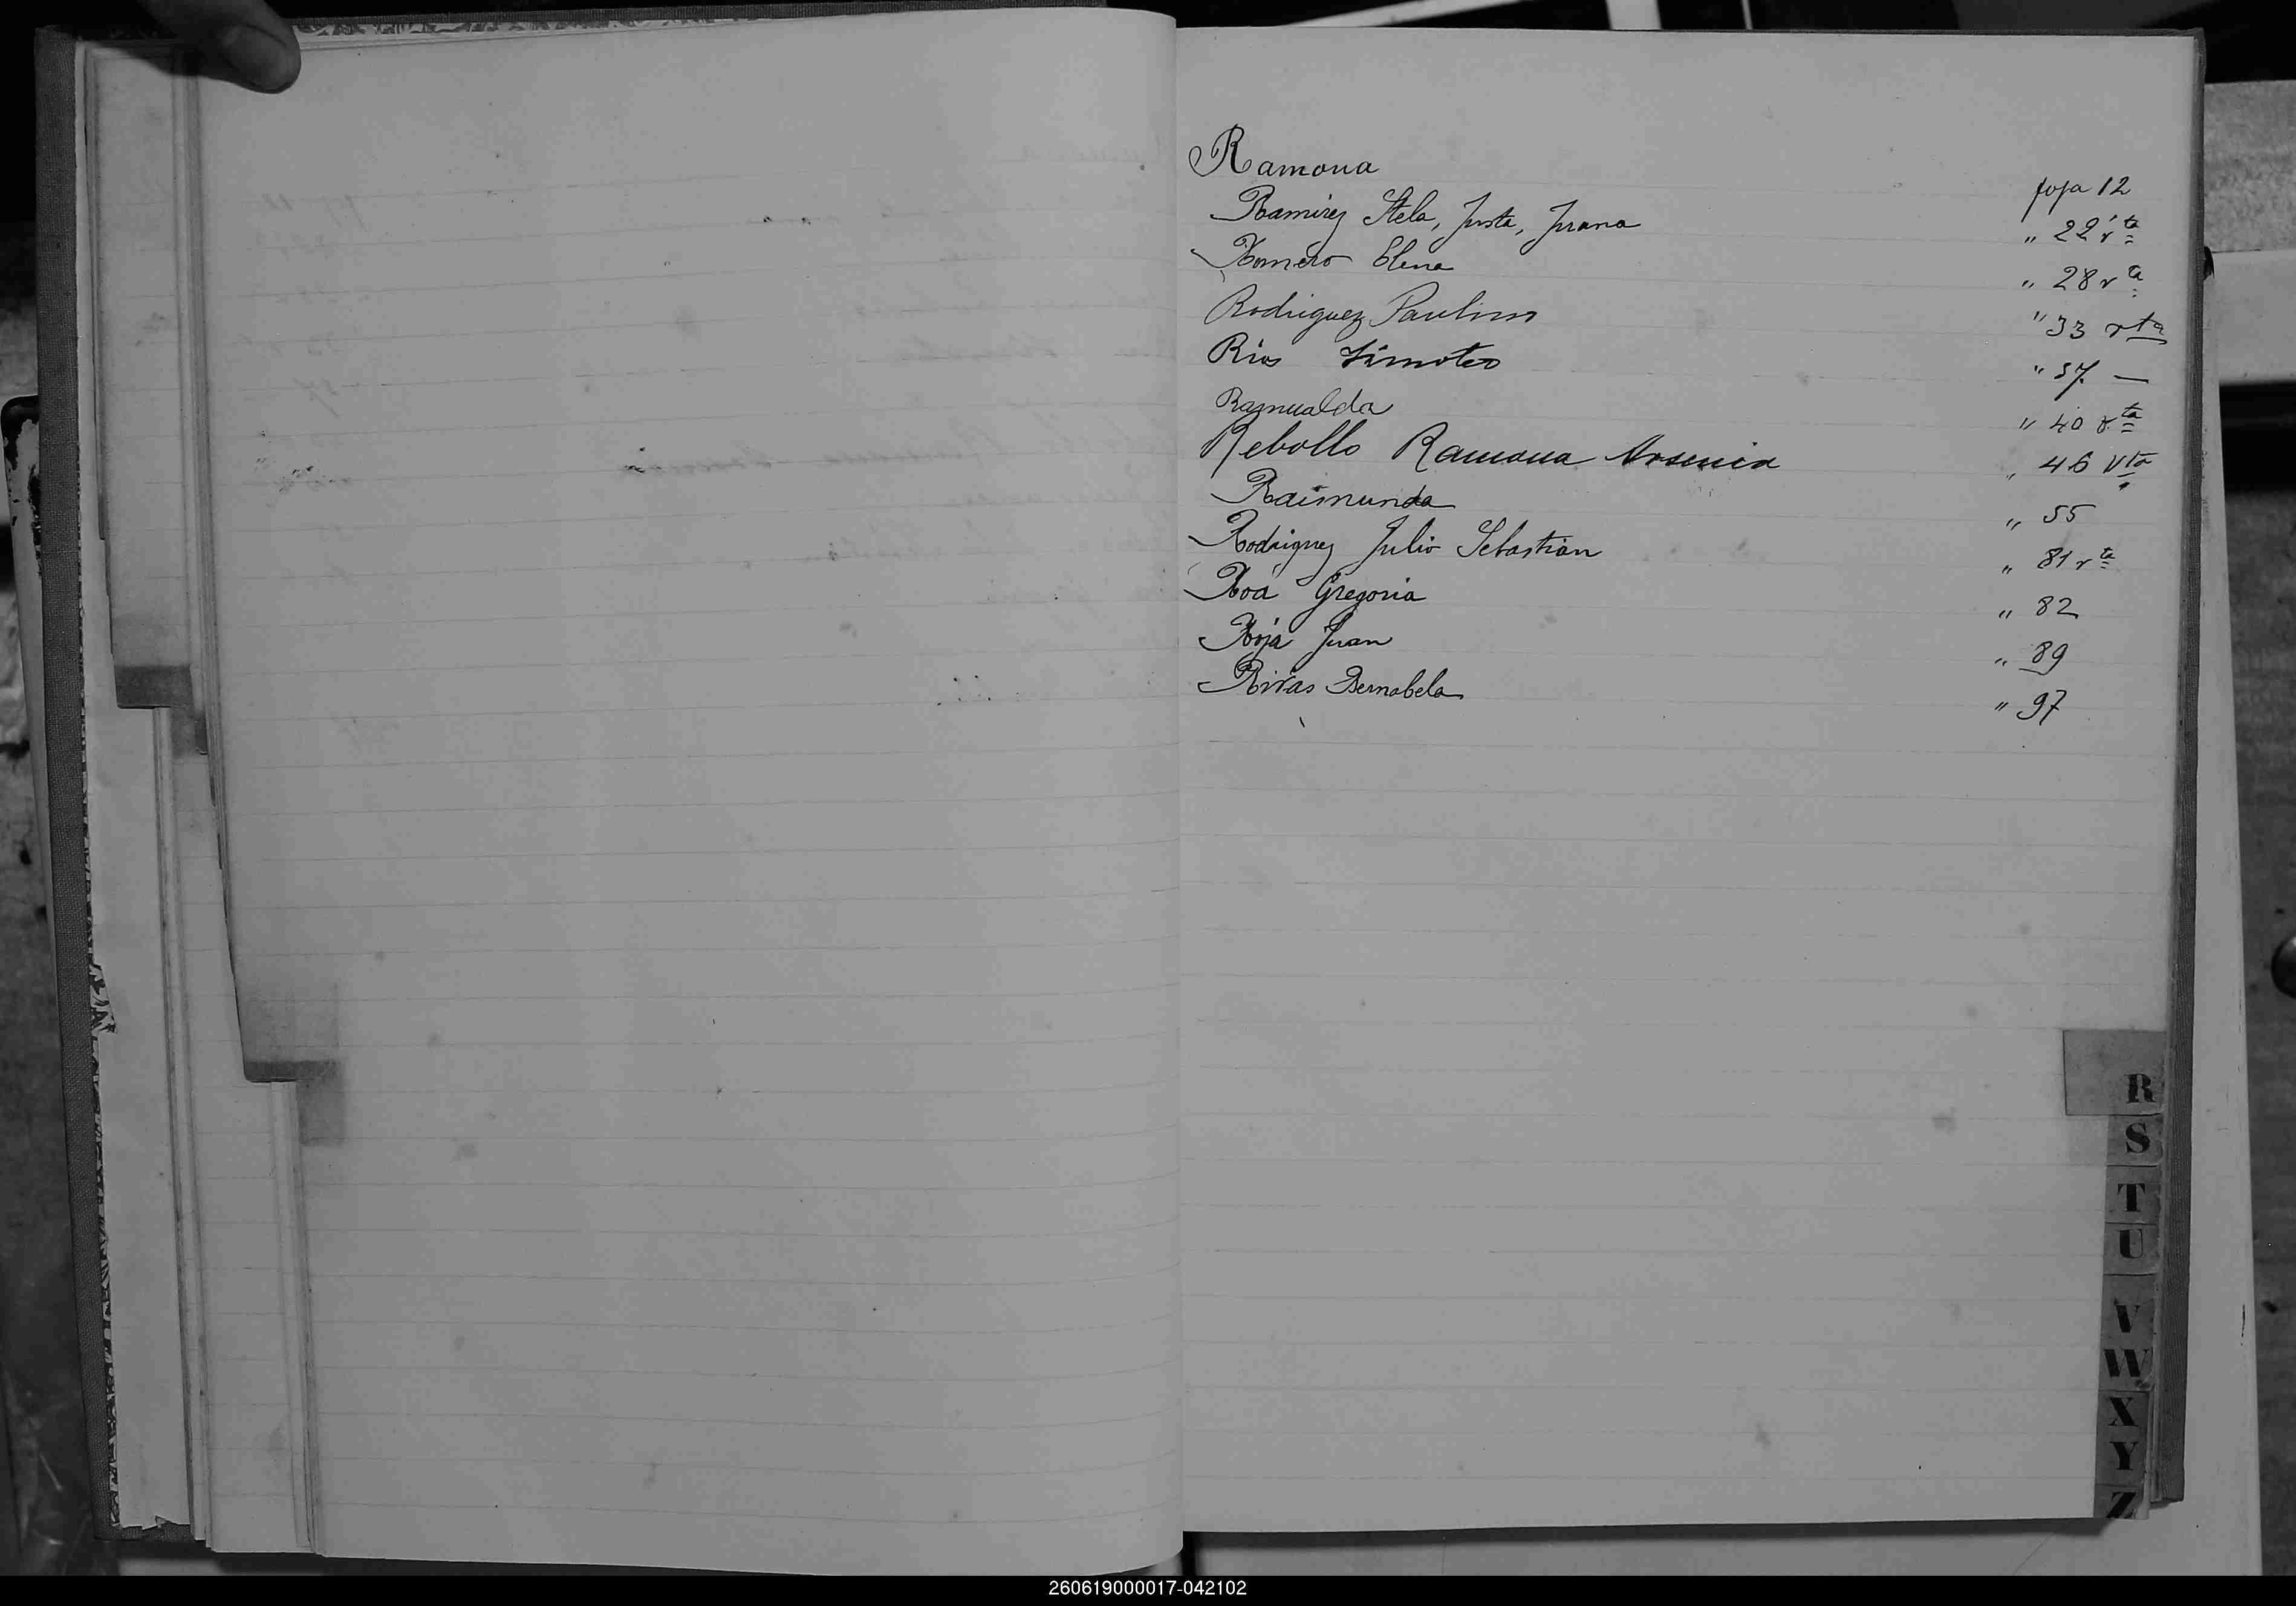 Ramona foja 12
Ramirez Stela, Justa, Juana " 22 vta
Romero Elena " 28 va
Rodriguez Paulino " 33 vta
Rios Timoteo " 37 —
Ramualda " 40 vta
Rebollo Ramona Arsenia " 46 vta
Raimunda " 55
Rodriguez Julio Sebastian " 81 vta
Roa Gregoria " 82
Roja Juan " 89
Rivas Bernabela " 97
R
S
T
U
V
W
X
Y
Z
260619000017-042102